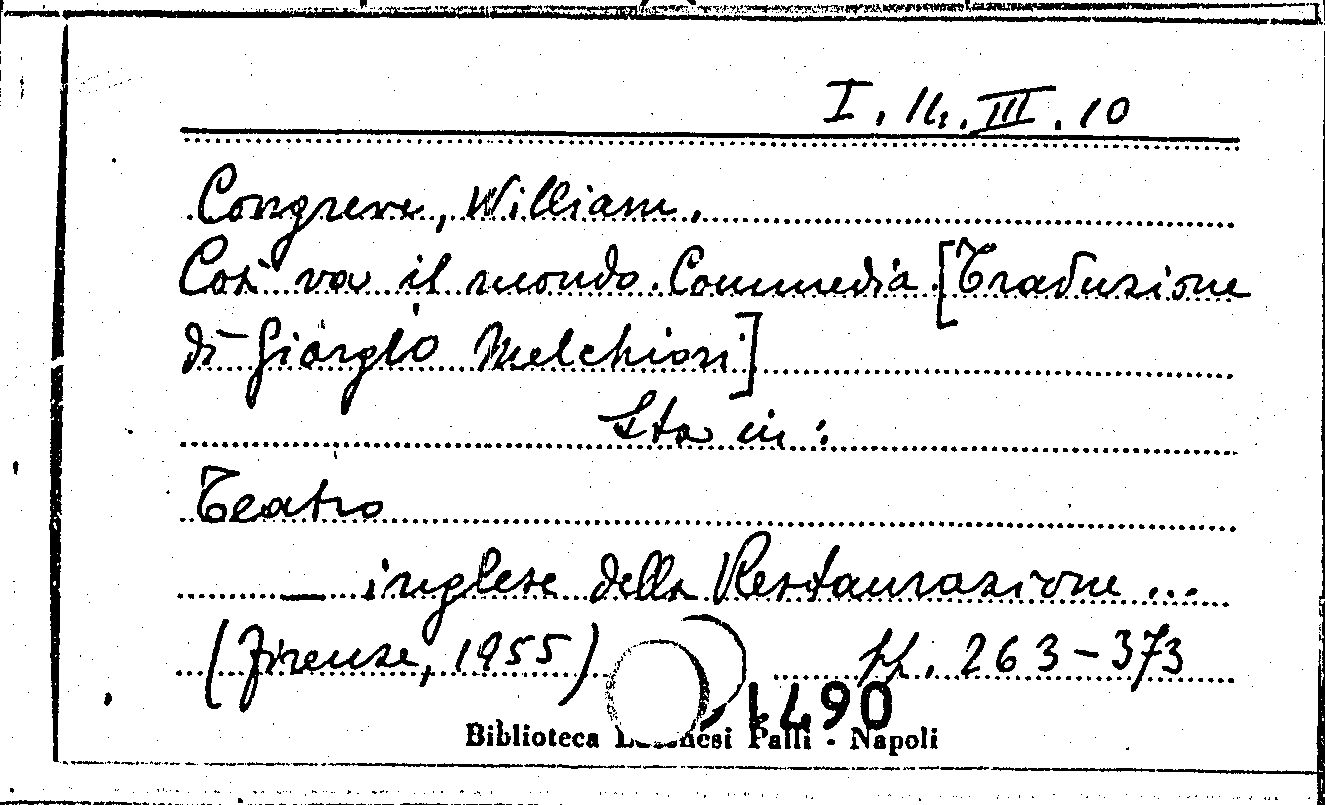 I. 14. III. 10
Congreve, William.
Così va il mondo. Commedia [Traduzione
di Giorgio Melchiori]
Sta in:
Teatro
— inglese della Restaurazione ...
(Firenze, 1955) pp. 263-373
1490
Biblioteca Palli - Napoli